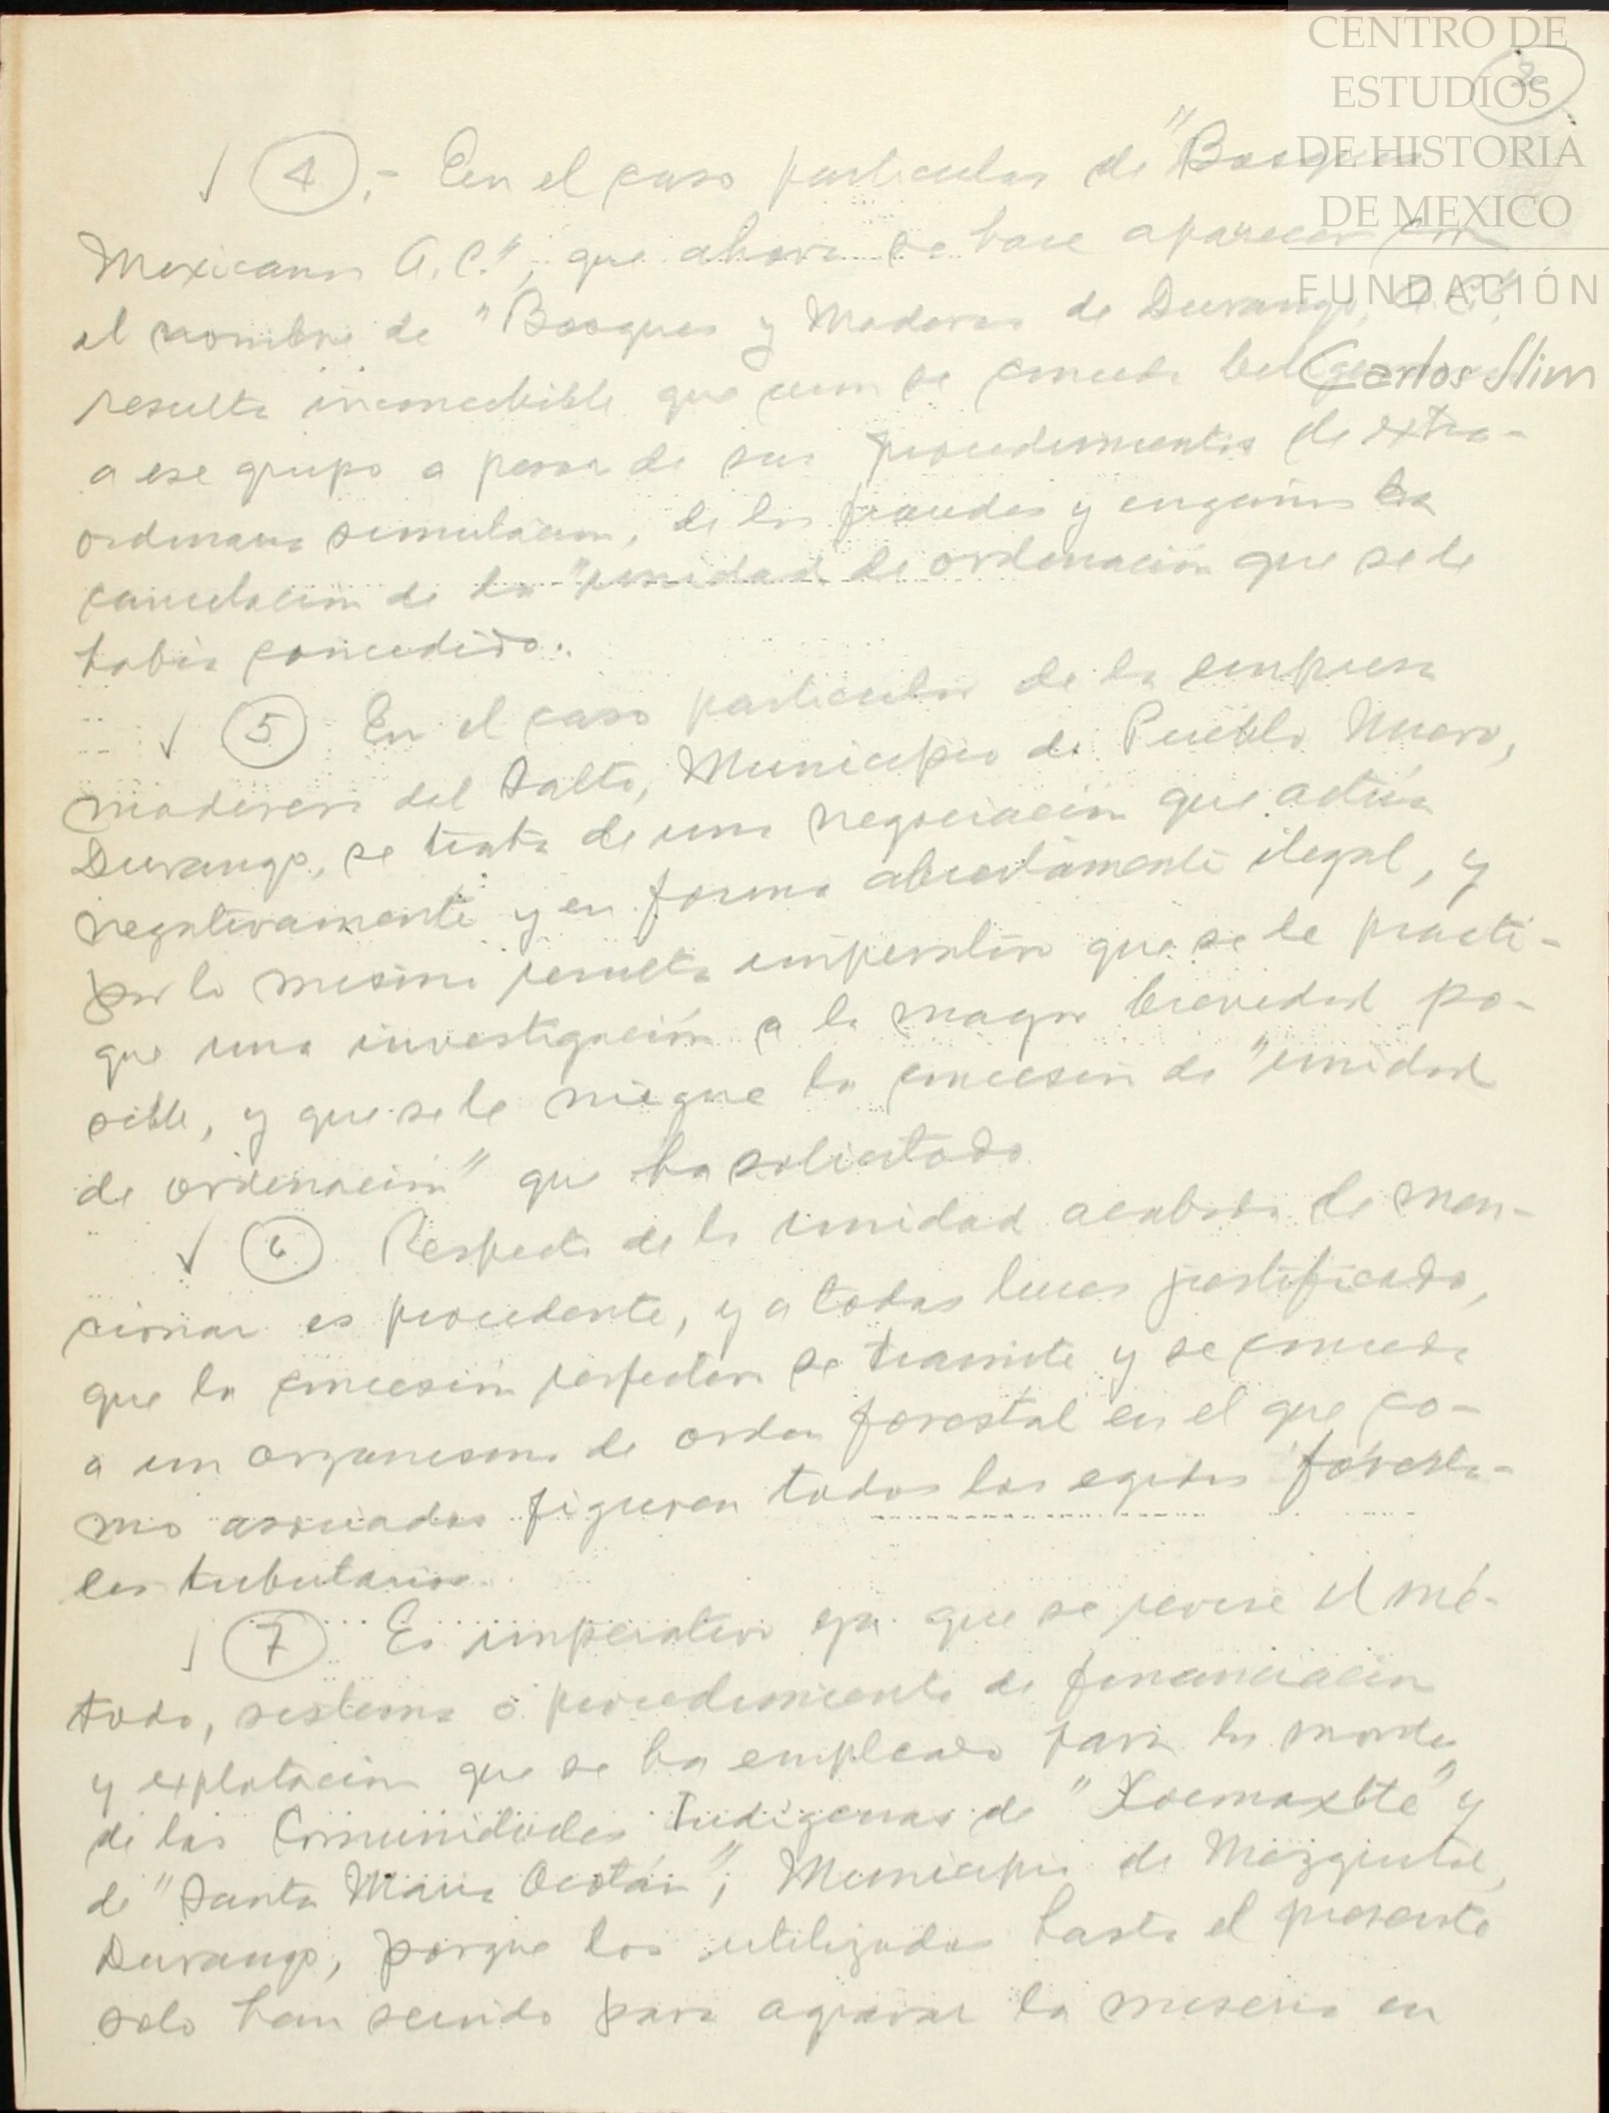 CENTRO DE
ESTUDIOS
DE HISTORIA
DE MEXICO
FUNDACIÓN
Carlos Slim
3
✓ 4.- En el caso particular de "Bosques
Mexicanos A.C.", que ahora se hace aparecer con
el nombre de "Bosques y Maderas de Durango, A.C.",
resulta inconcebible que aun se conceda
a ese grupo a pesar de sus procedimientos de extra-
ordinaria simulacion, de los fraudes y engaños la
cancelacion de la "unidad de ordenación que se le
había concedido.
✓ 5 En el caso particular de la empresa
maderera del Salto, Municipio de Pueblo Nuevo,
Durango, se trata de una negociación que actúa
negativamente y en forma abiertamente ilegal, y
por lo mismo resulta imperativo que se le practi-
que una investigación a la mayor brevedad po-
sible, y que se le niegue la concesión de "unidad
de ordenación" que ha solicitado
✓ 6 Respecto de la unidad acabada de men-
cionar es procedente, y a todas luces justificado,
que la concesión se tramite y se conceda
a un organismo de orden forestal en el que co-
mo asociados figuren todos los egidos foresta-
les tributarios.
✓ 7 Es imperativo que se revise el mé-
todo, sistema o procedimiento de financiación
y explotación que se ha empleado para los montes
de las Comunidades Indígenas de "Xocmaxtle" y
de "Santa María Ocotán", Municipio de Mezquital,
Durango, porque los utilizados hasta el presente
solo han servido para agravar la miseria en